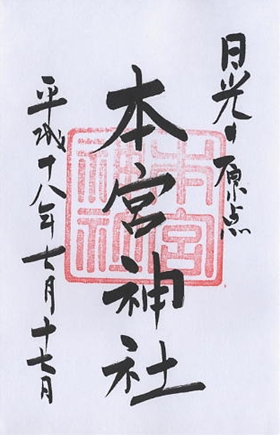 日光の原点
本宮神社
平成十八年七月十七日
本宮
神社